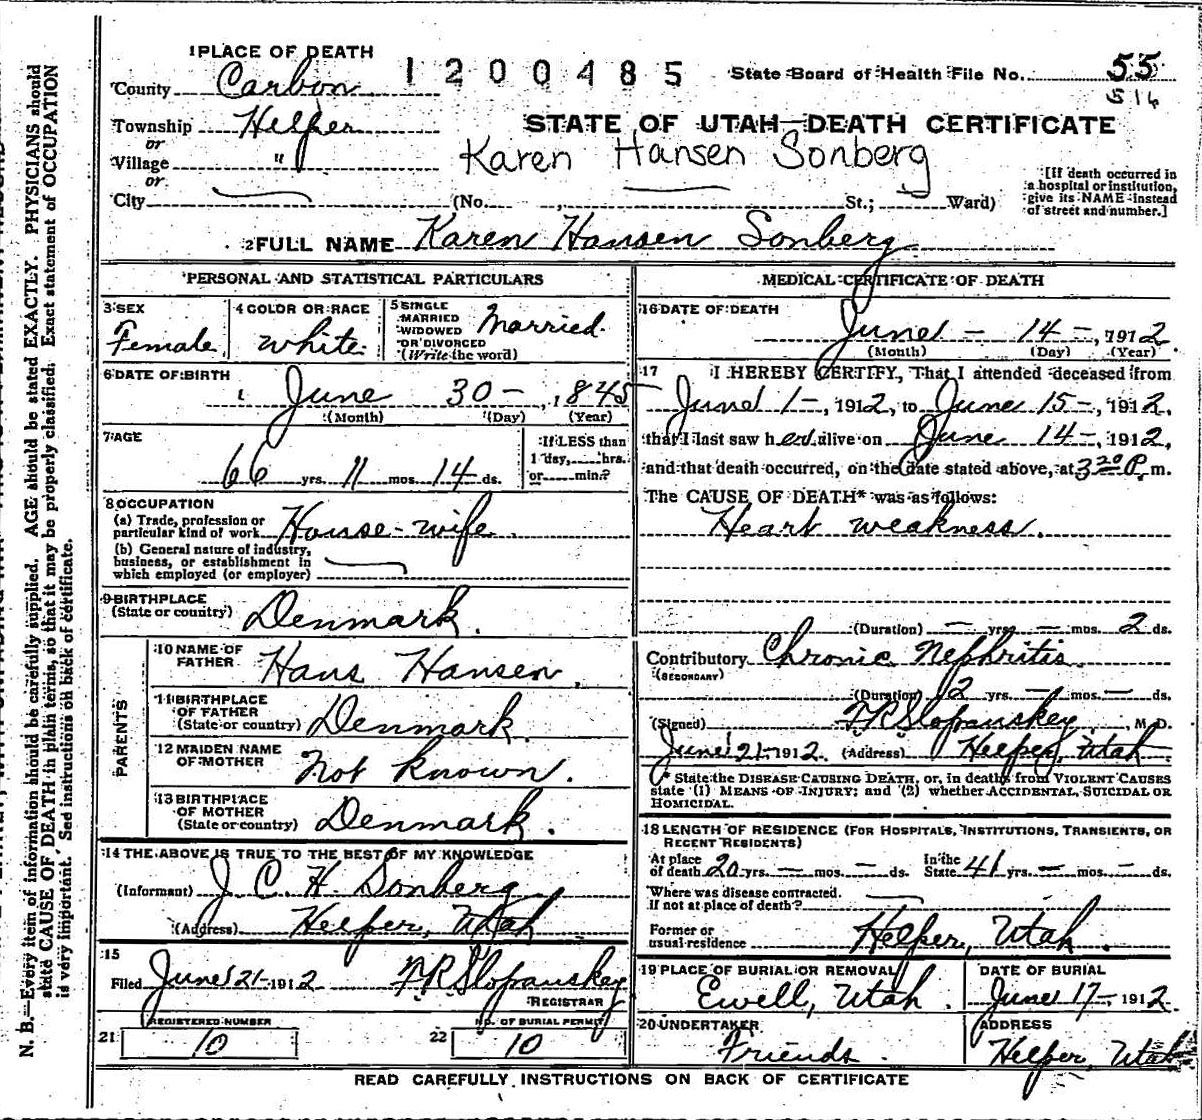 1 PLACE OF DEATH
County Carbon
1200485
State Board of Health File No. 55
516
Township Helper
or
Village "
or
City
STATE OF UTAH—DEATH CERTIFICATE
Karen Hansen Sonberg
(No. , St.; Ward)
[If death occurred in
a hospital or institution,
give its NAME instead
of street and number.]
2 FULL NAME Karen Hansen Sonberg
PERSONAL AND STATISTICAL PARTICULARS
3 SEX
Female
4 COLOR OR RACE
White
5 SINGLE
MARRIED
WIDOWED
OR DIVORCED
(Write the word)
Married
6 DATE OF BIRTH
June 30 – , 1845
(Month) (Day) (Year)
7 AGE
66 yrs. 11 mos. 14 ds.
If LESS than
1 day, hrs.
or min.?
8 OCCUPATION
(a) Trade, profession or
particular kind of work House-wife
(b) General nature of industry,
business, or establishment in
which employed (or employer)
9 BIRTHPLACE
(State or country) Denmark.
PARENTS
10 NAME OF
FATHER Hans Hansen.
11 BIRTHPLACE
OF FATHER
(State or country) Denmark.
12 MAIDEN NAME
OF MOTHER Not known.
13 BIRTHPLACE
OF MOTHER
(State or country) Denmark.
14 THE ABOVE IS TRUE TO THE BEST OF MY KNOWLEDGE
(Informant) J C H Sonberg
(Address) Helper, Utah
15
Filed June 21-1912
REGISTRAR
21 REGISTERED NUMBER
10
22 NO. OF BURIAL PERMIT
10
MEDICAL CERTIFICATE OF DEATH
16 DATE OF DEATH
June – 14 –, 1912
(Month) (Day) (Year)
17 I HEREBY CERTIFY, That I attended deceased from
June 1-, 1912, to June 15-, 1912,
that I last saw her alive on June 14-, 1912,
and that death occurred, on the date stated above, at 3 20 P. m.
The CAUSE OF DEATH* was as follows:
Heart weakness.
(Duration) – yrs. – mos. 2 ds.
Contributory Chronic Nephritis.
(SECONDARY)
(Duration) 2 yrs. – mos. – ds.
(Signed) M. D.
June 21-1912. (Address) Helper, Utah
* State the DISEASE CAUSING DEATH, or, in deaths from VIOLENT CAUSES
state (1) MEANS OF INJURY; and (2) whether ACCIDENTAL, SUICIDAL OR
HOMICIDAL.
18 LENGTH OF RESIDENCE (FOR HOSPITALS, INSTITUTIONS, TRANSIENTS, OR
RECENT RESIDENTS)
At place
of death 20 yrs. – mos. – ds. In the
State 41 yrs. – mos. – ds.
Where was disease contracted,
if not at place of death?
Former or
usual residence Helper, Utah.
19 PLACE OF BURIAL OR REMOVAL
Ewell, Utah.
DATE OF BURIAL
June 17-, 1912.
20 UNDERTAKER
Friends.
ADDRESS
Helper, Utah
READ CAREFULLY INSTRUCTIONS ON BACK OF CERTIFICATE
N. B.—Every item of information should be carefully supplied. AGE should be stated EXACTLY. PHYSICIANS should
state CAUSE OF DEATH in plain terms, so that it may be properly classified. Exact statement of OCCUPATION
is very important. See instructions on back of certificate.